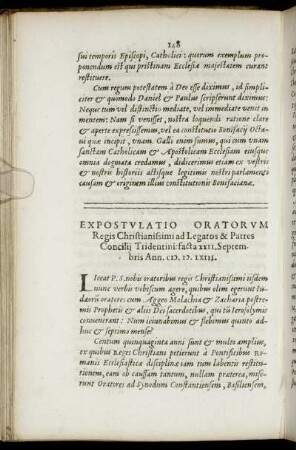 148
sui temporis Episcopi, Catholici: quorum exemplum pro-
ponendum est qui pristinam Ecclesiæ majestatem curant
restituere.
Cum regum potestatem à Deo esse diximus, id simpli-
citer & quomodo Daniel & Paulus scripserunt diximus:
Neque tum vel distinctio mediate, vel immediate venit in
mentem: Nam si venisset, nostra loquendi ratione clare
& aperte expressissemus, vel ea constitutio Bonifacij Octa-
vi quæ incepit, unam. Galli enim sumus, qui cum unam
sanctam Catholicam & Apostolicam Ecclesiam ejusque
omnia dogmata credamus, didicerimus etiam ex vestris &
nostris historiis actisque legitimis nostri parlamenti
causam & originem illius constitutionis Bonifacianæ.
EXPOSTVLATIO ORATORVM
Regis Christianissimi ad Legatos & Patres
Concilij Tridentini: facta XXII. Septem-
bris Ann. CIƆ. IƆ. LXIII.
LIceat P. S. nobis oratoribus regis Christianissimi iisdem
nunc verbis vobiscum agere, quibus olim egerunt Iu-
dæorū oratores cum Aggeo Malachia & Zacharia postre-
mis Prophetis & aliis Dei sacerdotibus, qui tū Ierosolymis
convenerant: Num jejunabimus & flebimus quinto ad-
huc & septimo mense?
Centum quinquaginta anni sunt & multo amplius,
ex quibus Reges Christiani petierunt à Pontificibus Ro-
manis Ecclesiasticæ disciplinæ jam tum labentis restitu-
tionem, eam ob caussam tantum, nullam præterea, mise-
runt Oratores ad Synodum Constantiensem, Basiliensem,